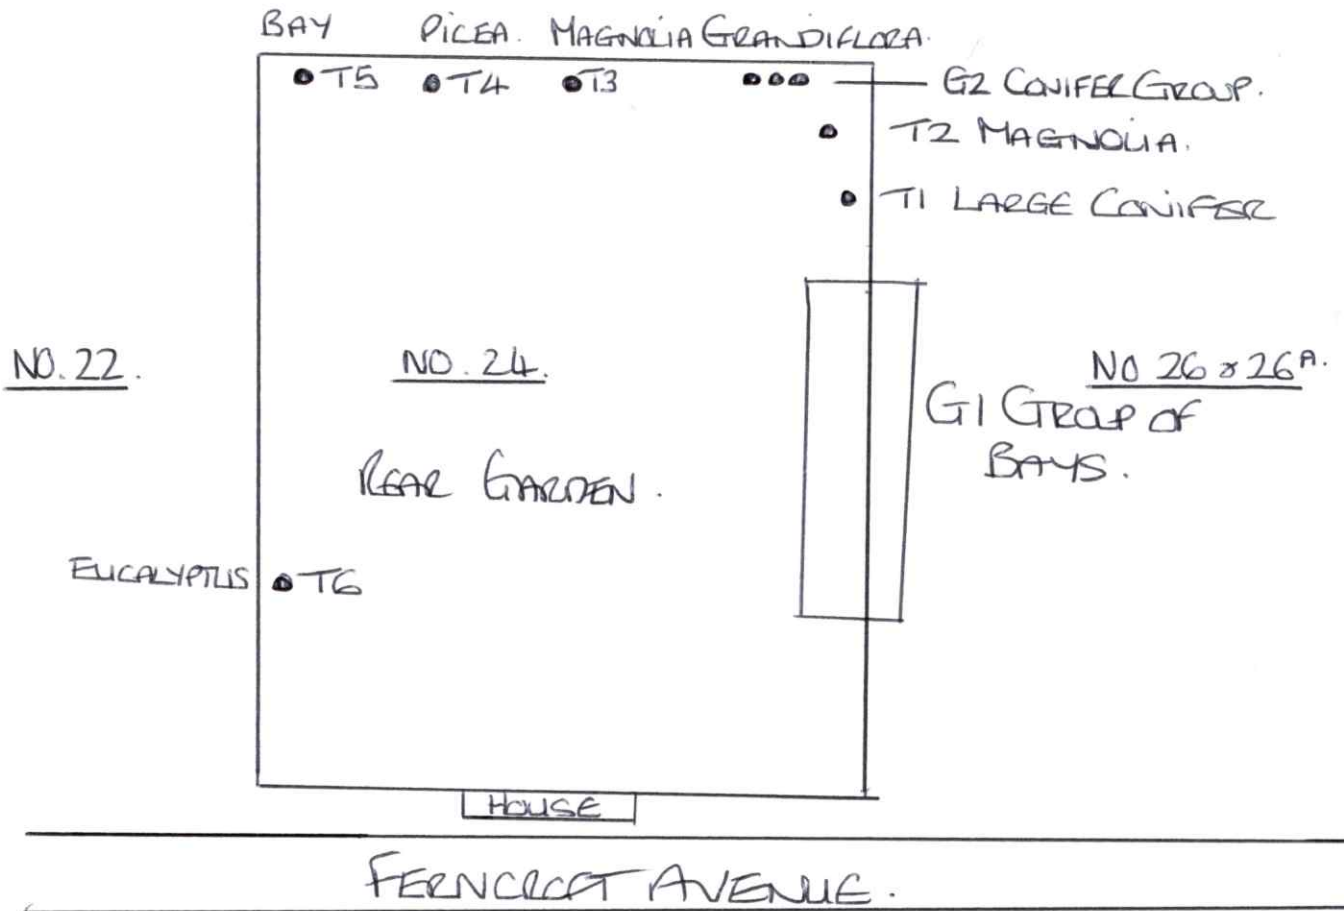 BAY PICEA. MAGNOLIA GRANDIFLORA.
T5 T4 T3 G2 CONIFER GROUP.
T2 MAGNOLIA.
T1 LARGE CONIFER
NO. 22. NO. 24. NO 26 & 26A.
G1 GROUP OF
BAYS.
REAR GARDEN.
EUCALYPTUS T6
HOUSE
FERNCROFT AVENUE.